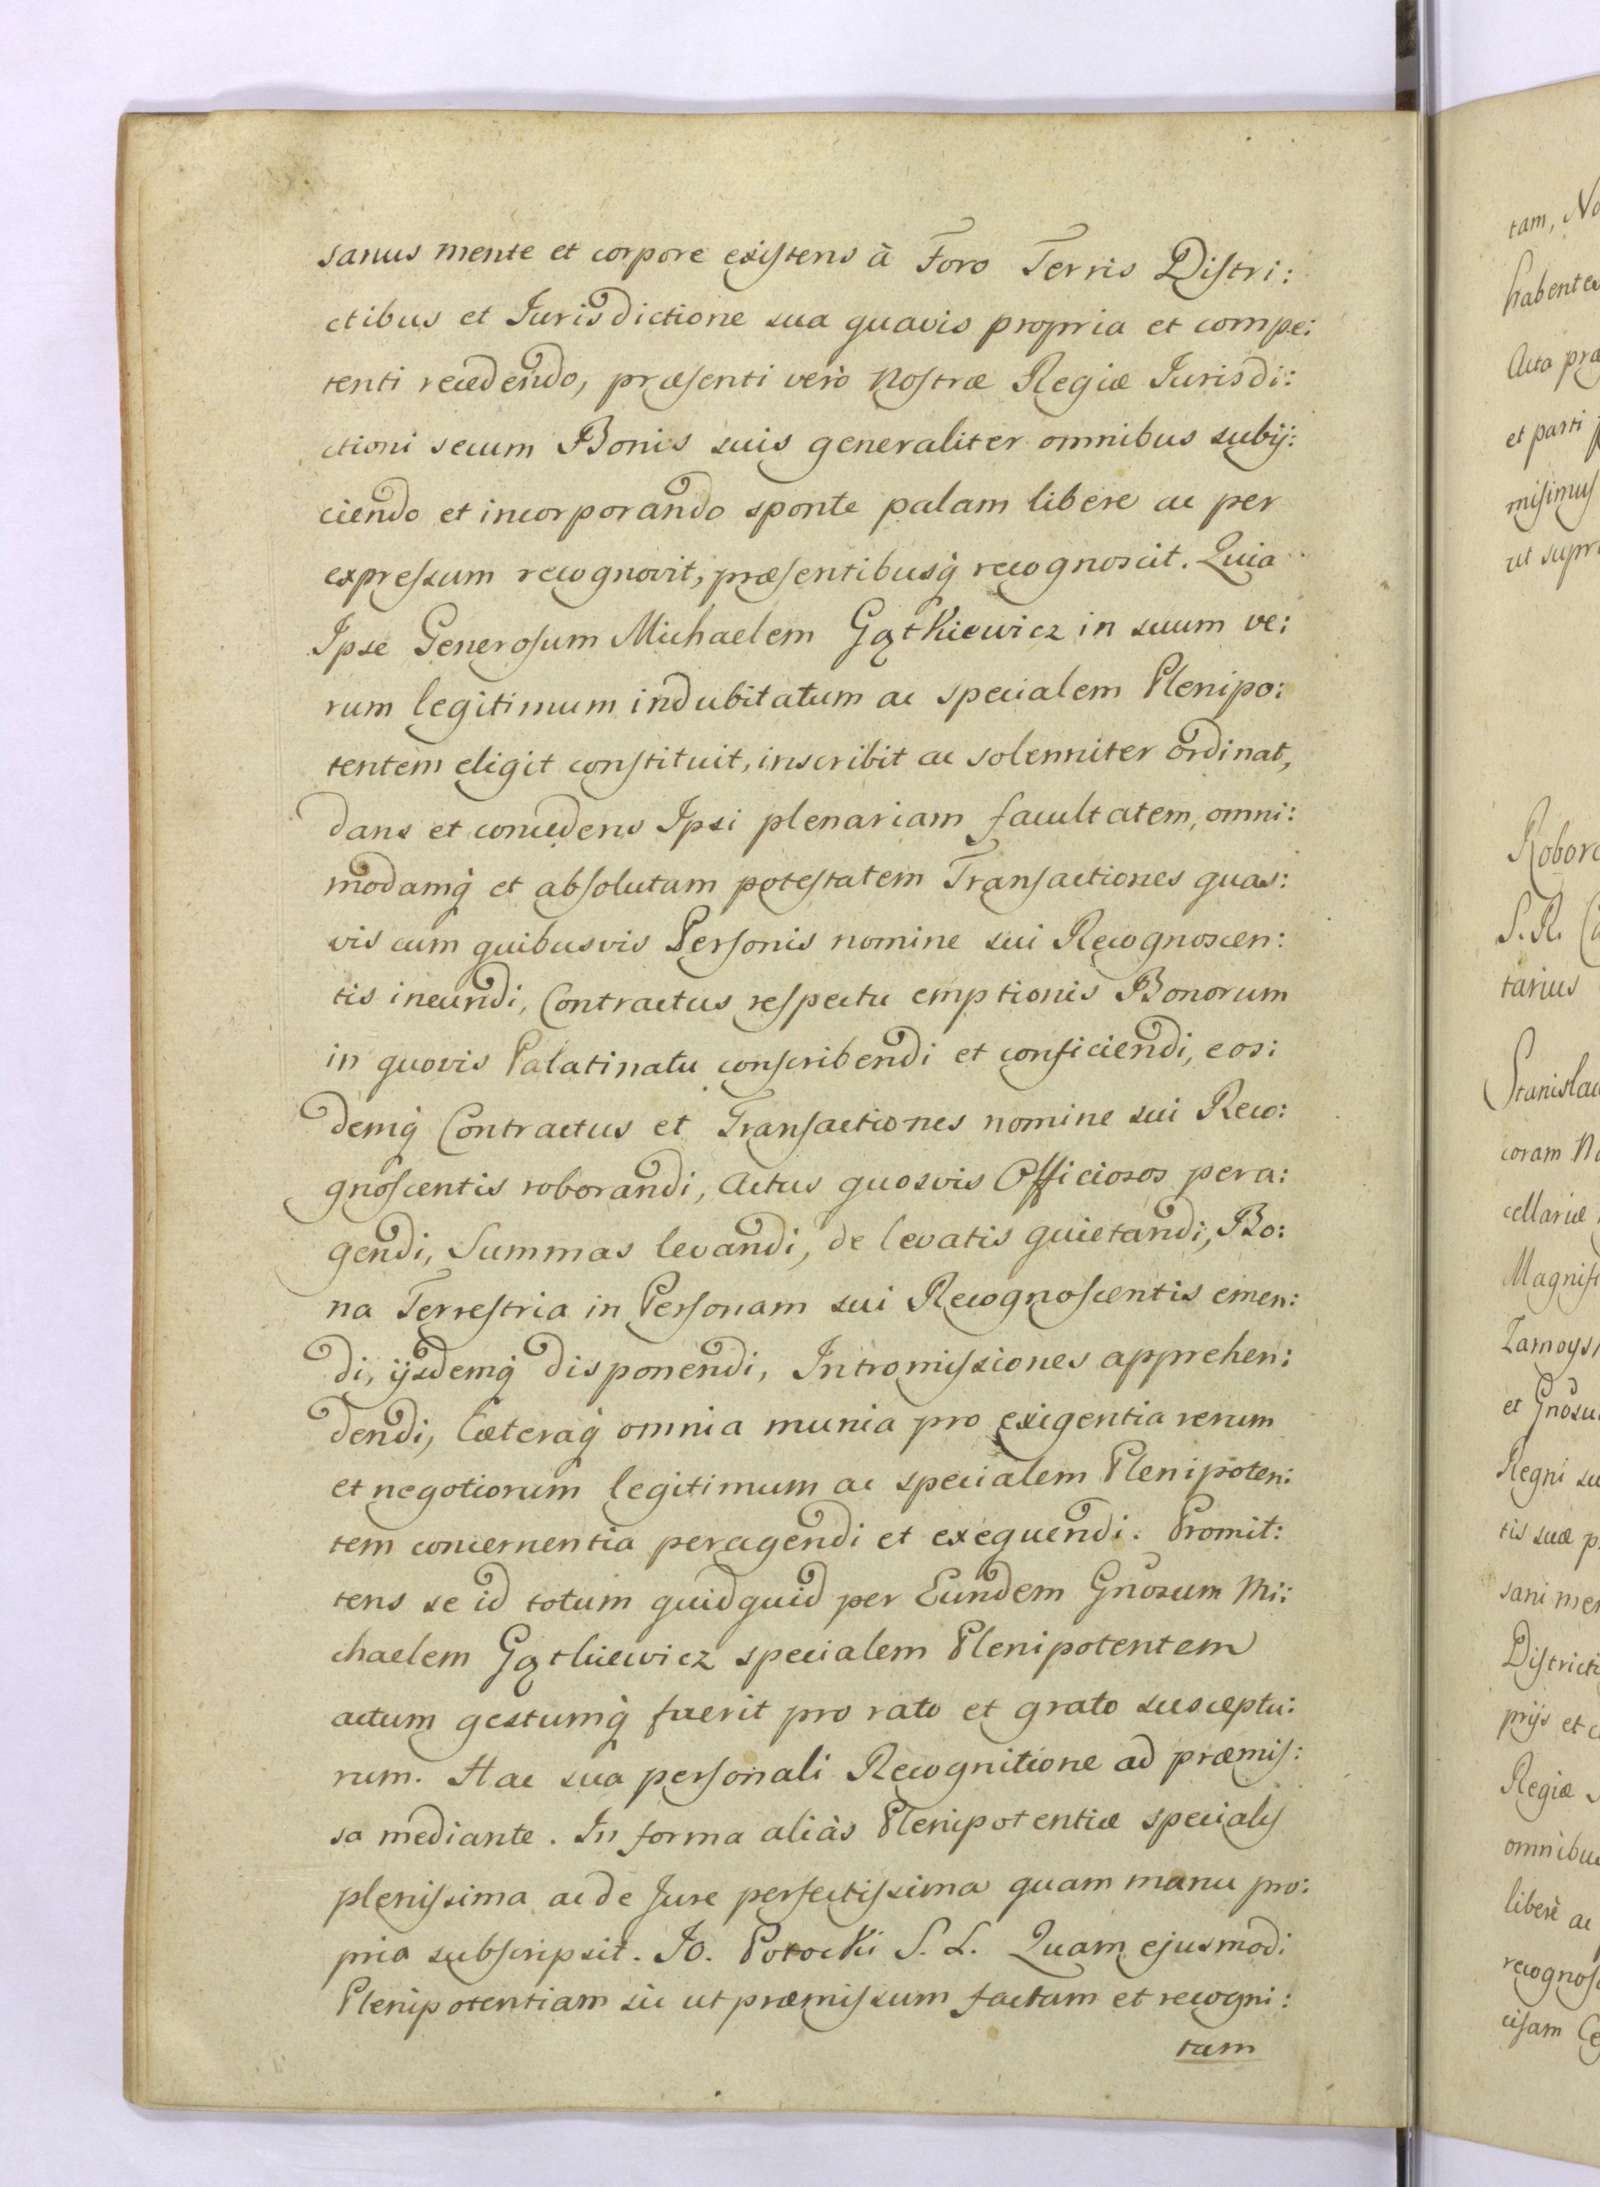 sanus mente et corpore existens à Foro Terris Distri:
ctibus et Jurisdictione sua quavis propria et compe:
tenti recedendo, præsenti verò Nostræ Regiæ Jurisdi:
ctioni secum Bonis suis generaliter omnibus subij:
ciendo et incorporando sponte palam libere ac per
expressum recognovit, præsentibusq̀ recognoscit. Quia
Ipse Generosum Michaelem Gątkiewicz in suum ve:
rum legitimum indubitatum ac specialem Plenipo:
tentem eligit constituit, inscribit ac solenniter ordinat,
dans et concedens Ipsi plenariam facultatem, omni:
modamq̀ et absolutam potestatem Transactiones quas:
vis cum quibusvis Personis nomine sui Recognoscen:
tis ineundi, Contractus respectu emptionis Bonorum
in quovis Palatinatu conscribendi et conficiendi, eos:
demq̀ Contractus et Transactiones nomine sui Reco:
gnoscentis roborandi, Actus quosvis Officiosos pera:
gendi, Summas levandi, de levatis quietandi, Bo:
na Terrestria in Personam sui Recognoscentis emen:
di, ijsdemq̀ disponendi, Intromissiones apprehen:
dendi, Cæteraq̀ omnia munia pro exigentia rerum
et negotiorum legitimum ac specialem Plenipoten:
tem concernentia peragendi et exequendi. Promit:
tens se id totum quidquid per Eundem Gnosum Mi:
chaelem Gątkiewicz specialem Plenipotentem
actum gestumq̀ fuerit pro rato et grato susceptu:
rum. Hac sua personali Recognitione ad præmis:
sa mediante. In forma aliàs Plenipotentiæ specialis
plenissima ac de Jure perfectissima quam manu pro:
pria subscripsit. Jo. Potocki S. L. Quam ejusmodi
Plenipotentiam sic ut præmissum factam et recogni:
tam
tam, No
habentes
Acta præ
et parti p
misimus
ut supra
Robora
S. R. Ca
tarius
Stanislau
coram No
cellariæ
Magnifi
Zamoysk
et Gnosu
Regni su
tis suæ p
sani men
Districti
prijs et c
Regiæ J
omnibus
liberè ac
recognosc
cisam Ce